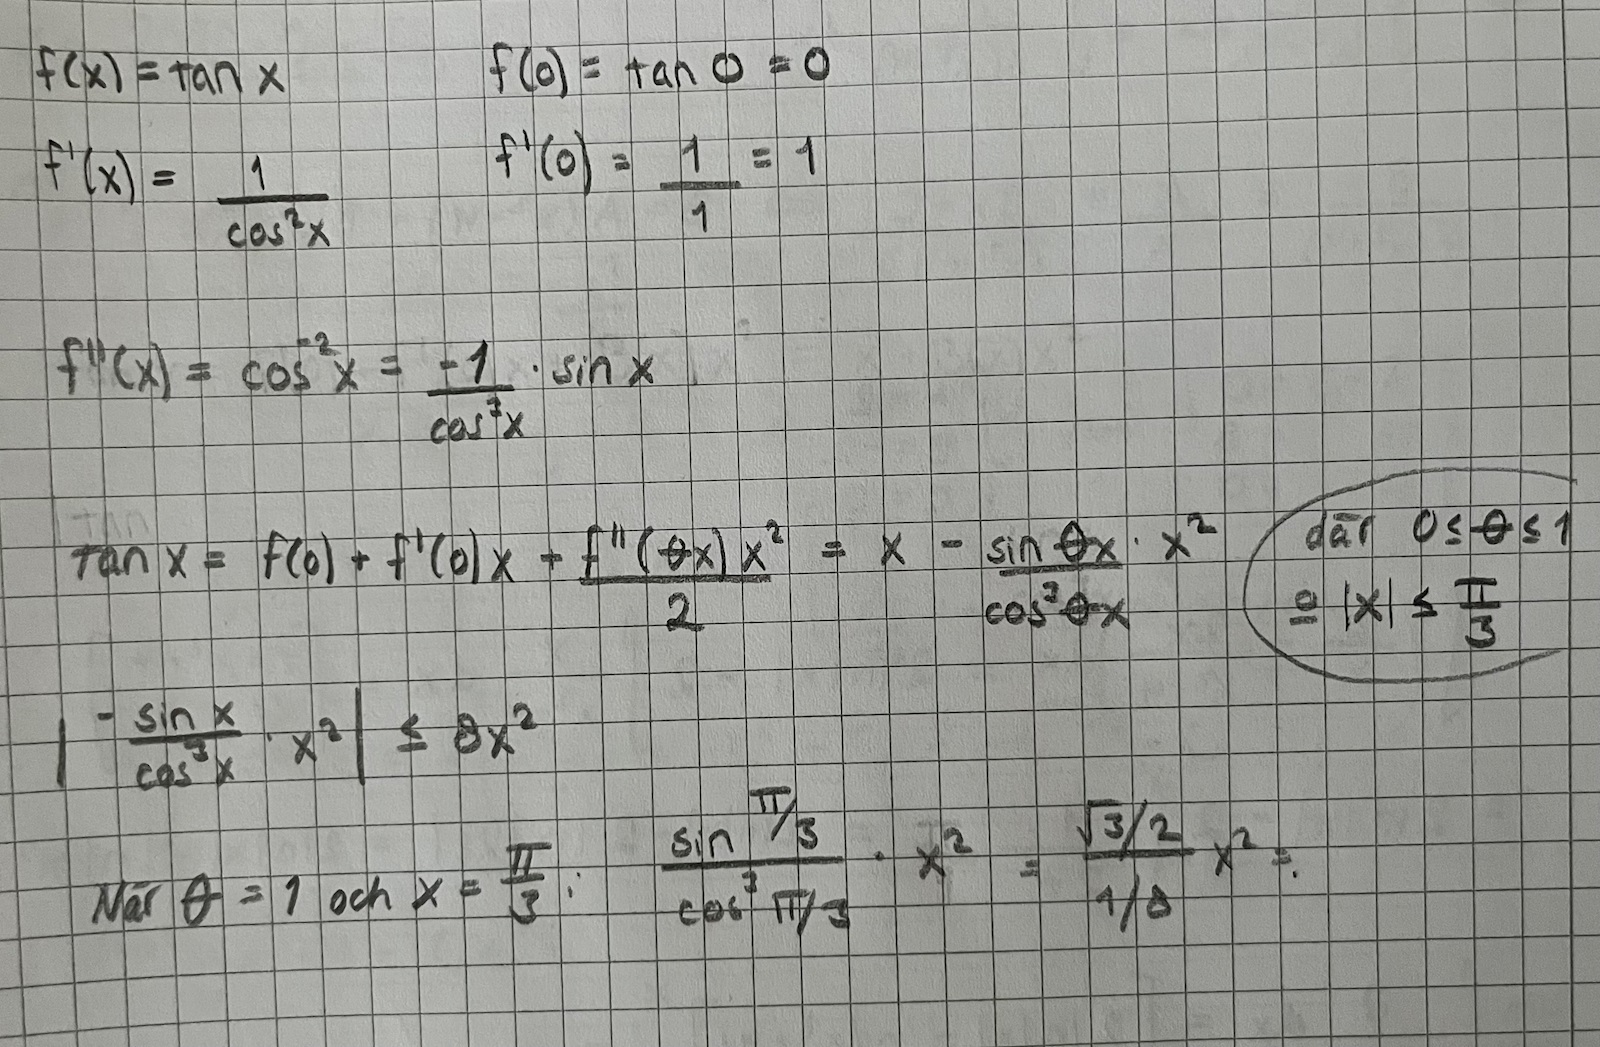 f(x) = tan x f(0) = tan 0 = 0
f'(x) = 1/cos²x f'(0) = 1/1 = 1
f''(x) = cos⁻²x = -1/cos³x · sin x
tan x = f(0) + f'(0)x + f''(θx)x²/2 = x - sin θx/cos³θx · x² där 0 ≤ θ ≤ 1
o |x| ≤ π/3
|- sin x/cos³x · x²| ≤ 8x²
När θ = 1 och x = π/3 : sin π/3 / cos³ π/3 · x² = √3/2 / 1/8 x² =